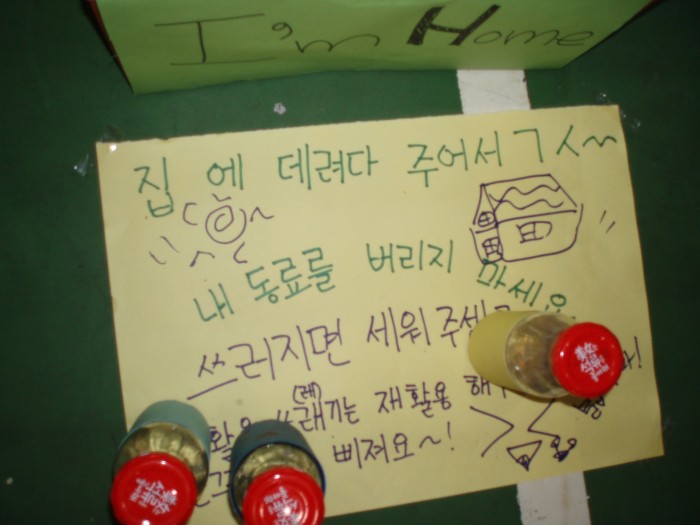 I'm Home
집 에 데려다 주어서 ㄱㅅ~
내 동료를 버리지 마세요
쓰러지면 세워 주세
(레)
활용 쓰래기는 재활용 해
삐져요~!